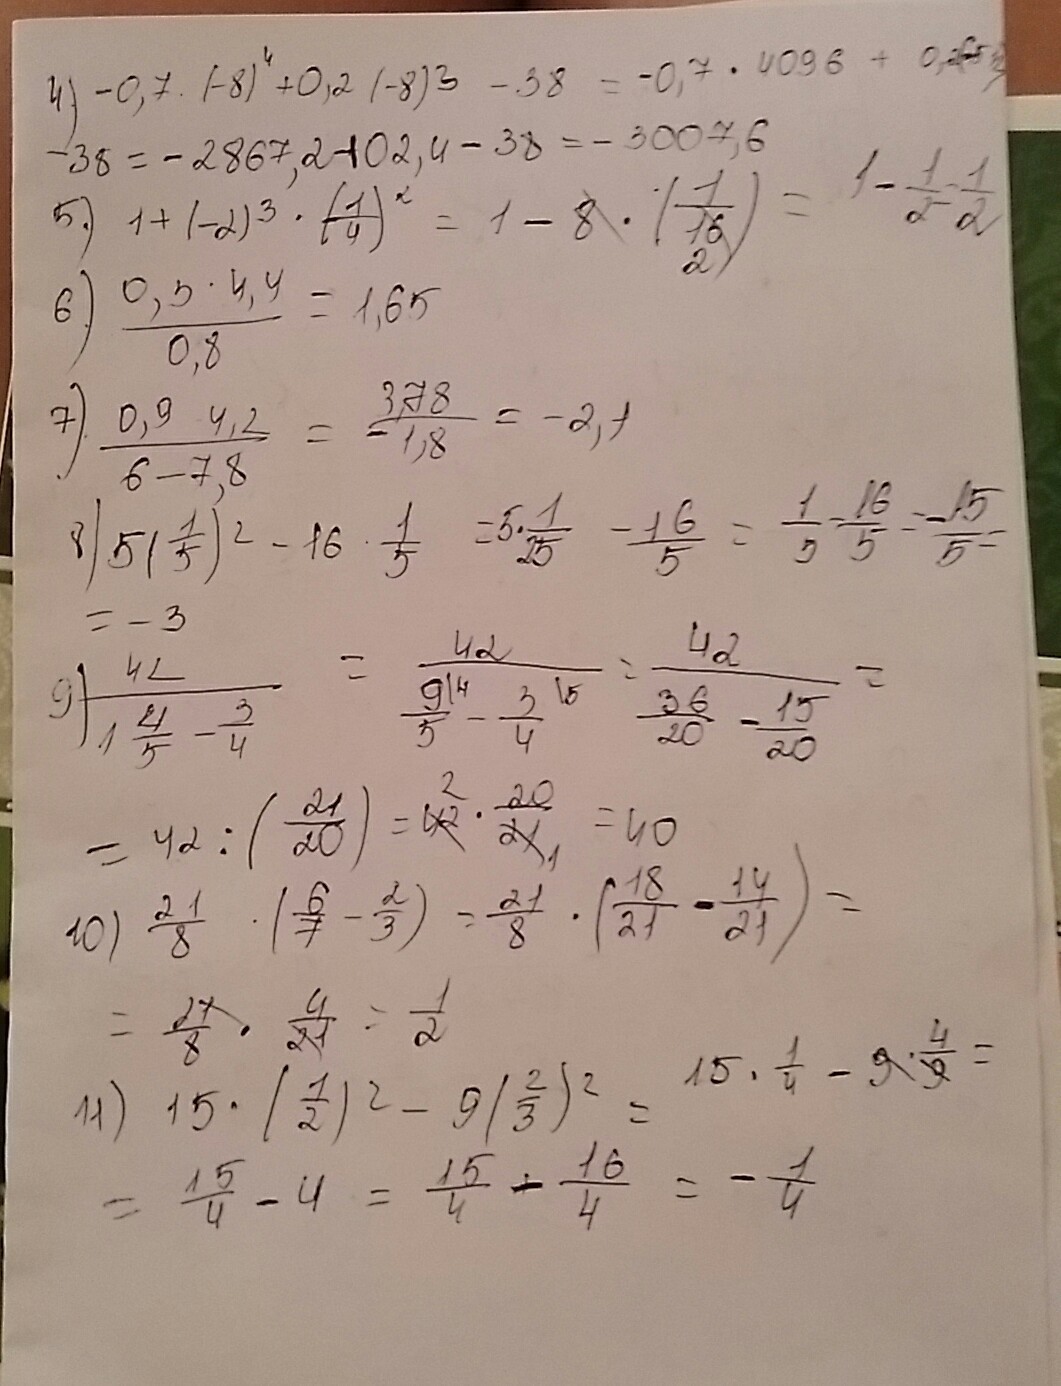 4) -0,7 · (-8)^4 + 0,2 (-8)^3 - 38 = -0,7 · 4096 + 0,2
-38 = -2867,2 - 102,4 - 38 = -3007,6
5) 1 + (-2)^3 · (1/4)^2 = 1 - 8 · (1/16 2) = 1 - 1/2 = 1/2
6) 0,3 · 4,4 / 0,8 = 1,65
7) 0,9 4,2 / 6 - 7,8 = 3,78 / -1,8 = -2,1
8) 5 (1/5)^2 - 16 · 1/5 = 5 · 1/25 - 16/5 = 1/5 - 16/5 = -15/5 =
= -3
9) 42 / (1 4/5 - 3/4) = 42 / (9/5 \4 - 3/4 \5) = 42 / (36/20 - 15/20) =
= 42 : (21/20) = 42 2 · 20/21 1 = 40
10) 21/8 · (6/7 - 2/3) = 21/8 · (18/21 - 14/21) =
= 21/8 · 4/21 = 1/2
11) 15 · (1/2)^2 - 9 (2/3)^2 = 15 · 1/4 - 9 · 4/9 =
= 15/4 - 4 = 15/4 - 16/4 = -1/4